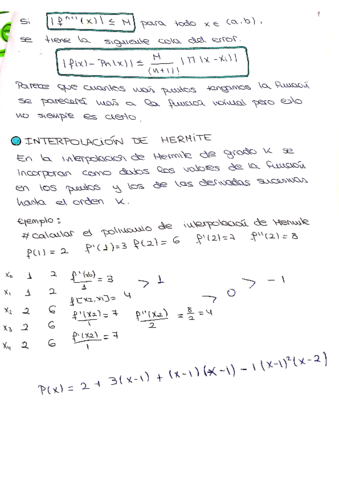 Si |fⁿ⁺¹(x)| ≤ M para todo x ∈ (a,b),
se tiene la siguiente cota del error.
|f(x) - Pn(x)| ≤ M/(n+1)! |Π(x-xi)|
Parece que cuantos más puntos tengamos la función
se parecerá más a la función normal pero esto
no siempre es cierto.
INTERPOLACIÓN DE HERMITE
En la interpolación de Hermite de grado K se
incorporan como datos los valores de la función
en los puntos y los de las derivadas sucesivas
hasta el orden K.
Ejemplo:
# Calcular el polinomio de interpolación de Hermite
f(1) = 2 f'(1)=3 f(2) = 6 f'(2)=7 f''(2) = 8
x₀ 1 2 f'(x₀)/1 = 3 > 1 > -1
x₁ 1 2 f[x₂,x₁] = 4
x₂ 2 6 f'(x₂)/1 = 7 f''(x₂)/2 = 8/2 = 4 > 0
x₃ 2 6 f'(x₂)/1 = 7
x₄ 2 6
P(x) = 2 + 3(x-1) + (x-1)(x-1) - 1(x-1)²(x-2)